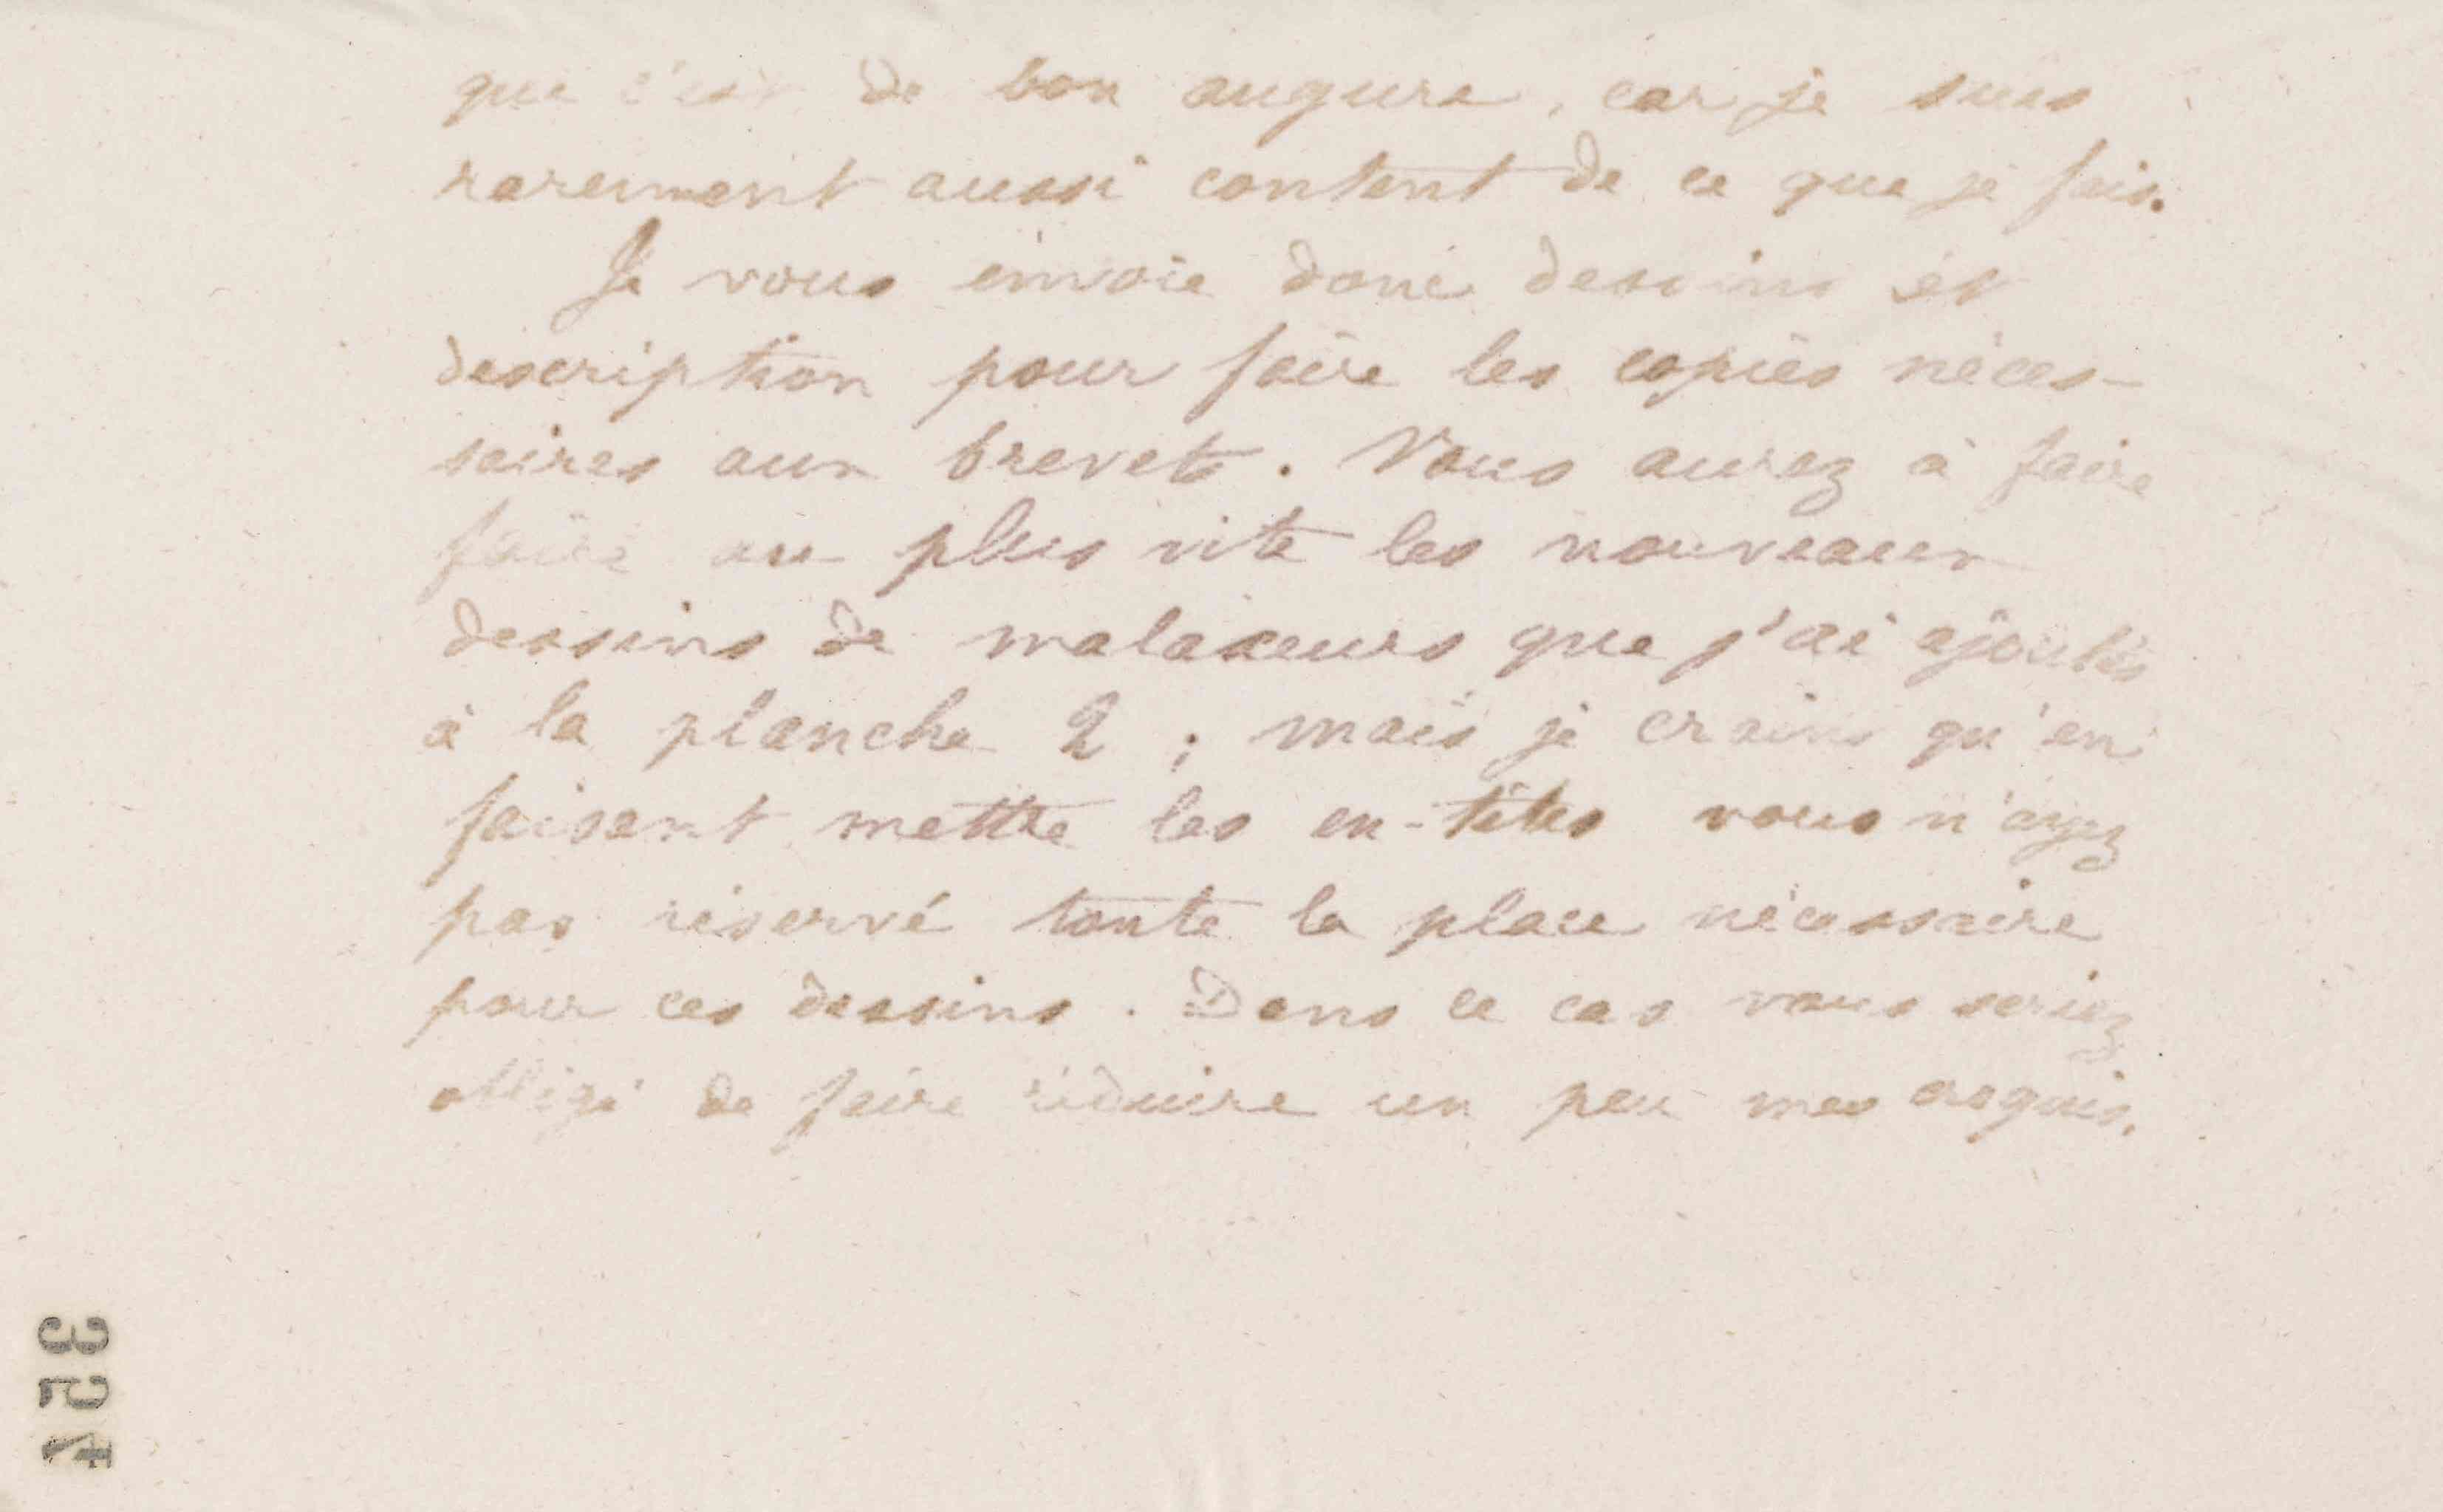 que c'est de bon augure, car je suis
rarement aussi content de ce que je fais.
Je vous envoie donc dessins et
description pour faire les copies néces-
saires aux brevets. Vous aurez à faire
faire au plus vite les nouveaux
dessins de malaxeurs que j'ai ajoutés
à la planche 2 ; mais je crains qu'en
faisant mettre les en-têtes vous n'ayez
pas réservé toute la place nécessaire
pour ces dessins. Dans ce cas vous seriez
obligé de faire réduire un peu mes croquis.
354